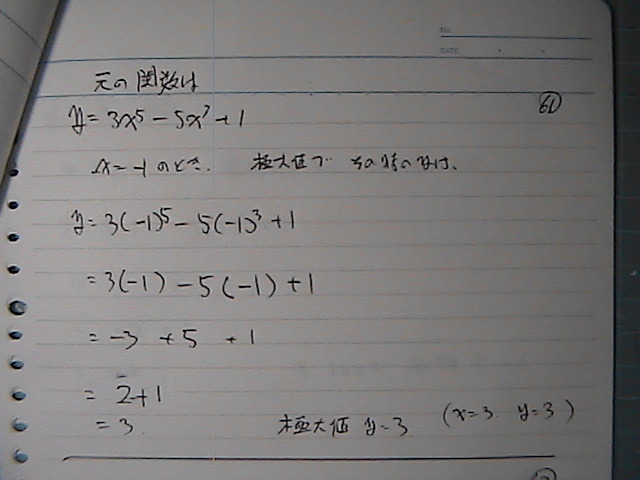 NO.
DATE
元の関数は
y = 3x⁵ - 5x³ + 1
61
x = -1 のとき. 極大値で その時のyは、
y = 3(-1)⁵ - 5(-1)³ + 1
= 3(-1) - 5(-1) + 1
= -3 + 5 + 1
= 2+1
= 3. 極大値 y = 3 (x=3. y=3)